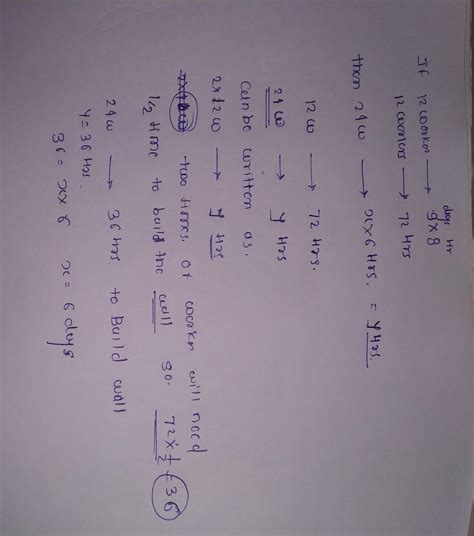 days Hr
If 12 worker → 9 x 8
12 workers → 72 Hrs
then 24 w → x x 6 Hrs. = y Hrs.
12 w → 72 Hrs.
24 w → y Hrs
Can be written as.
2 x 12 w → y Hrs
two times of workr will need
1/2 time to build the wall so. 72 x 1/2 = 36
24 w → 36 Hrs to Build wall
y = 36 Hrs.
36 = x x 6 x = 6 days